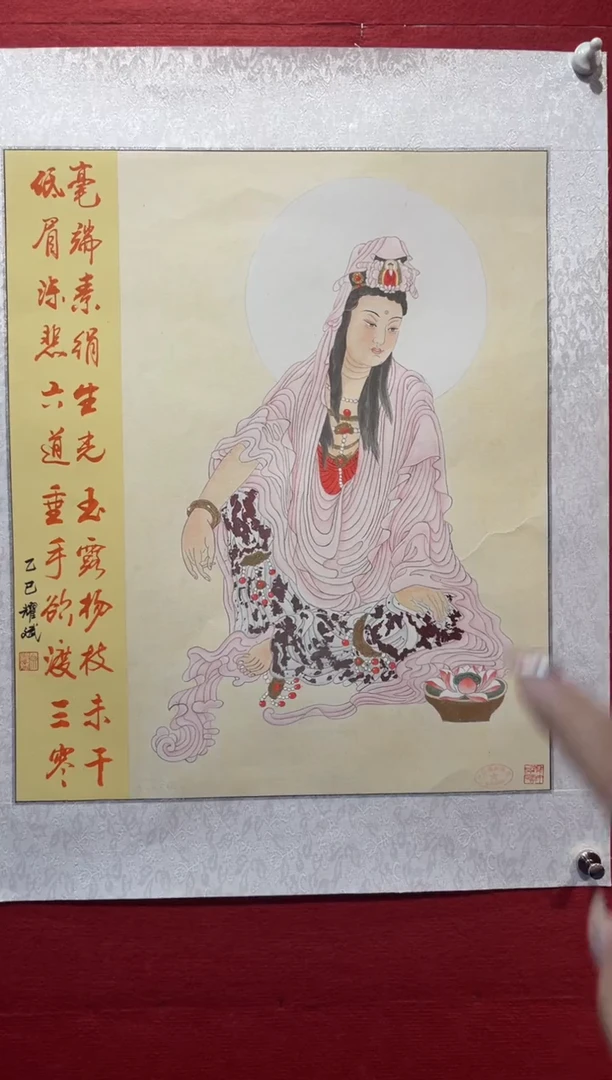 毫端素绢生光玉露杨枝未干
低眉深悲六道垂手欲渡三寒
乙巳耀斌